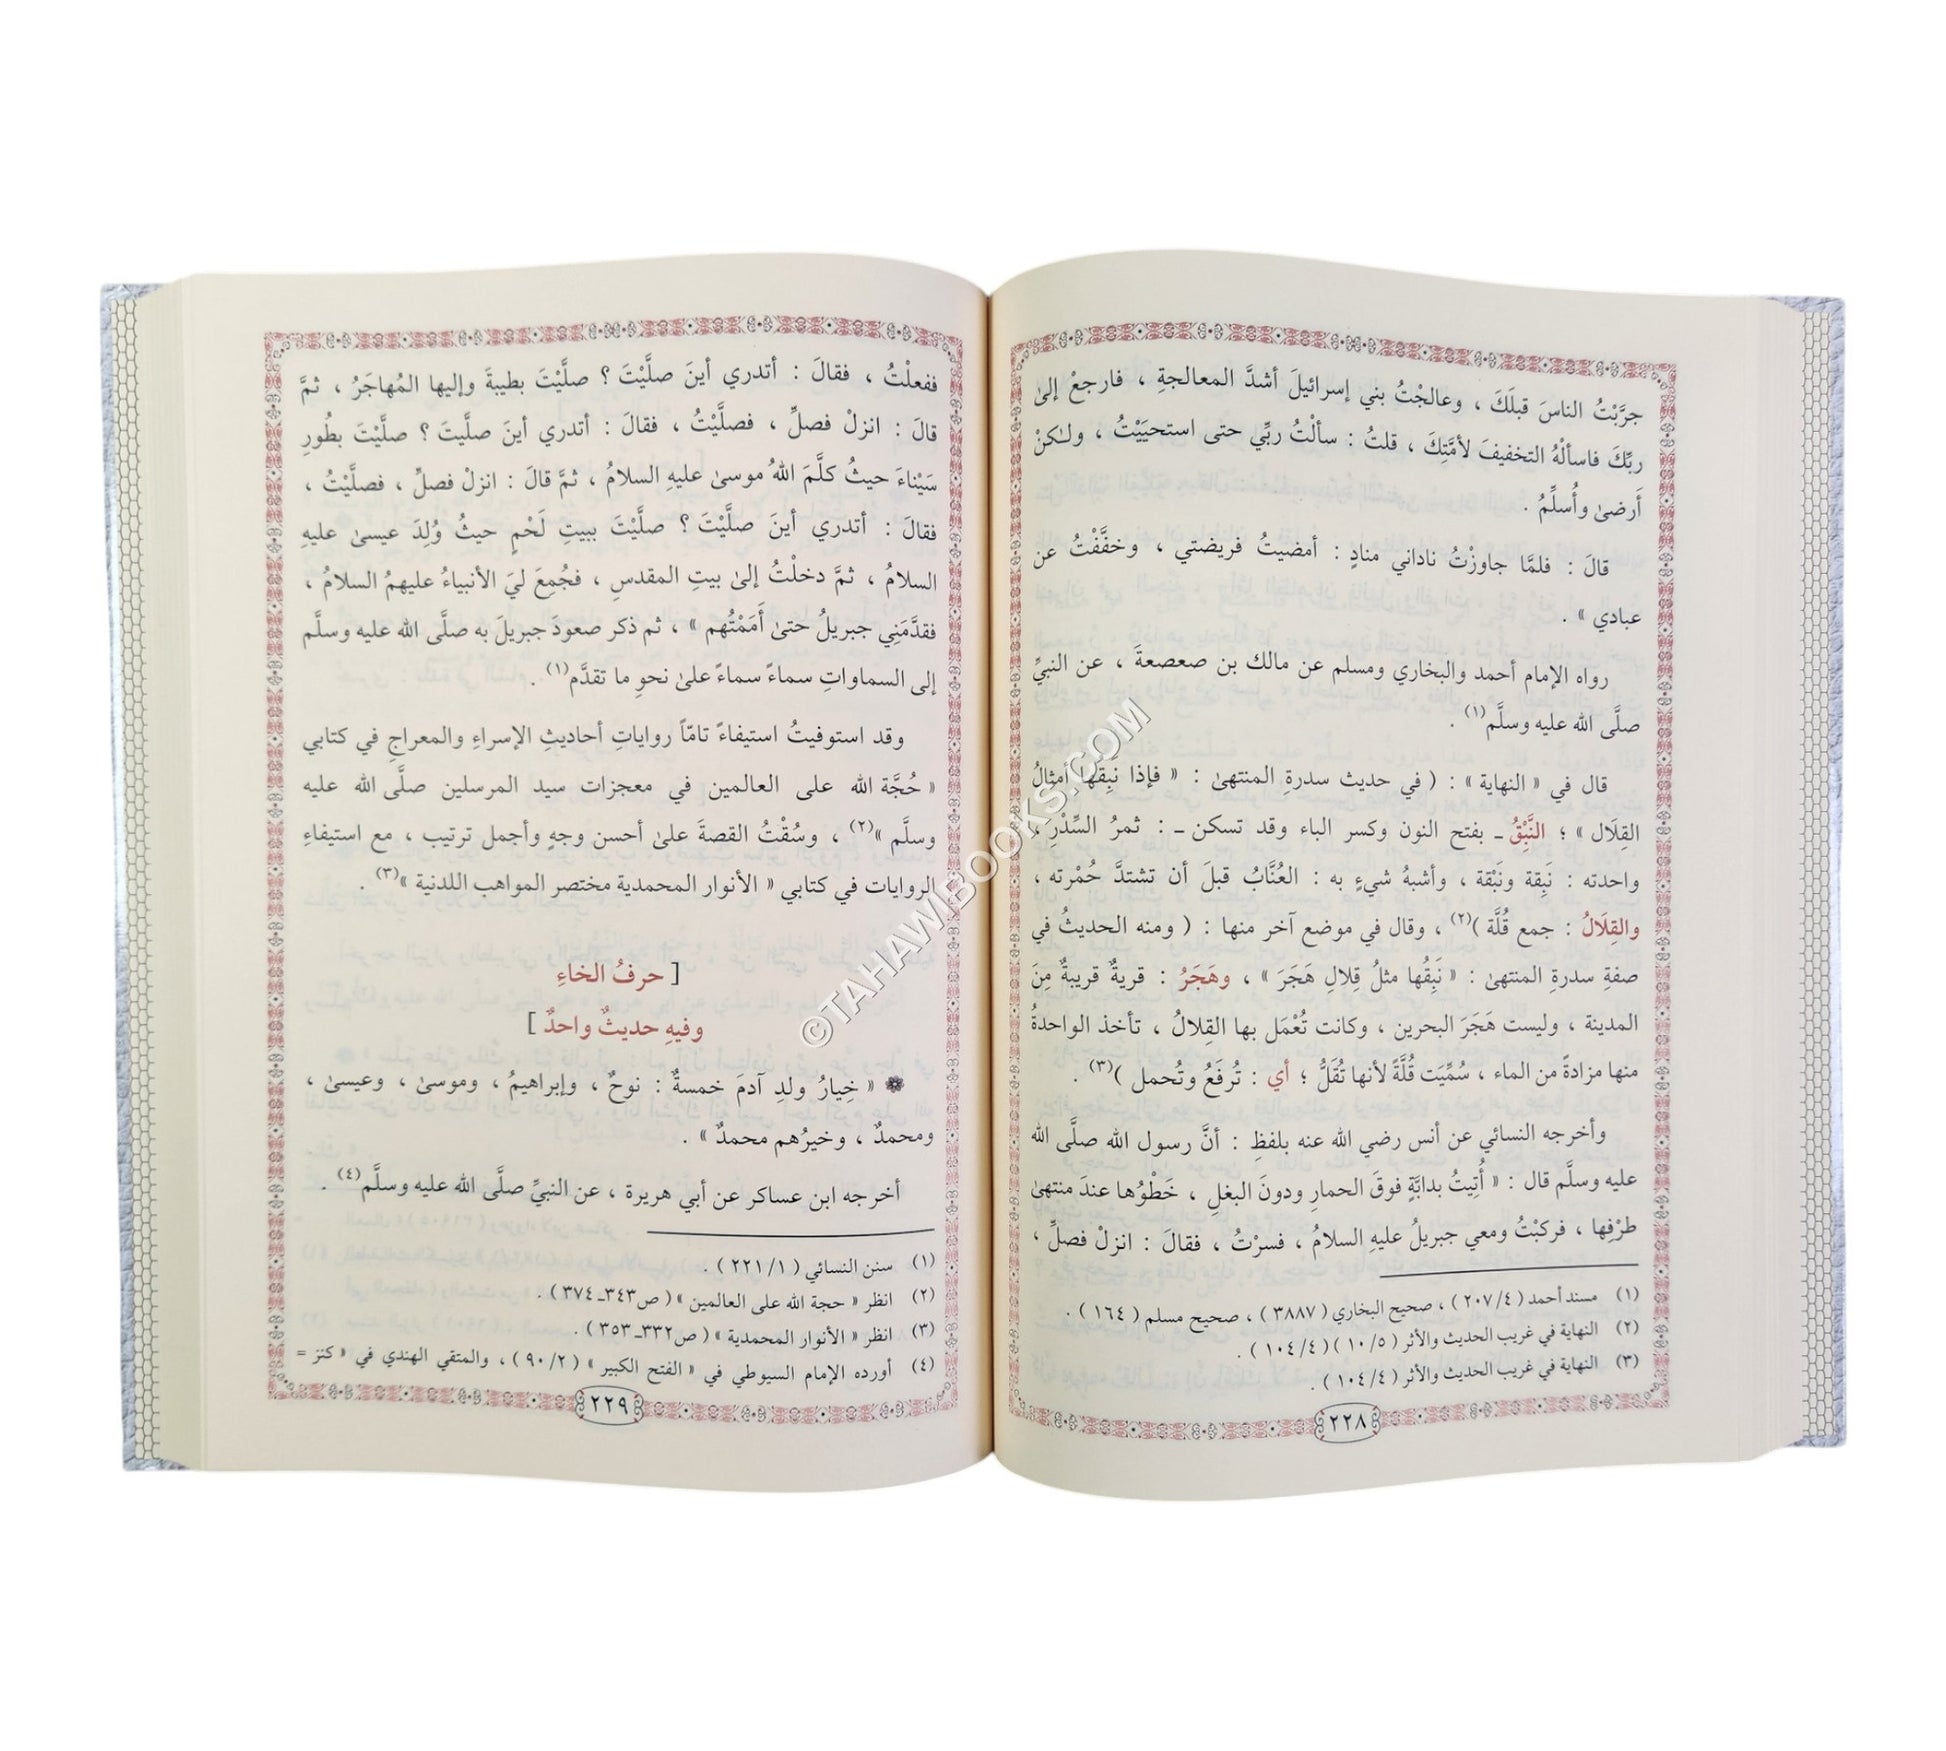 جرَّبْتُ الناسَ قبلَكَ ، وعالجْتُ بني إسرائيلَ أشدَّ المعالجةِ ، فارجعْ إلىٰ
ربِّكَ فاسألْهُ التخفيفَ لأمَّتِكَ ، قلتُ : سألْتُ ربِّي حتى استحيَيْتُ ، ولٰكنْ
أَرضىٰ وأُسلِّمُ .
قالَ : فلمَّا جاوزْتُ ناداني منادٍ : أمضيتُ فريضتي ، وخفَّفْتُ عن
عبادي » .
رواه الإمام أحمد والبخاري ومسلم عن مالك بن صعصعةَ ، عن النبيِّ
صلَّى الله عليه وسلَّم(١) .
قال في « النهاية » : ( في حديث سدرةِ المنتهىٰ : « فإذا نبِقُها أمثالُ
القِلَال » ؛ النَّبِقُ ـ بفتح النون وكسر الباء وقد تسكن ـ : ثمرُ السِّدْرِ ،
واحدته : نَبِقة ونَبْقة ، وأشبهُ شيءٍ به : العُنَّابُ قبلَ أن تشتدَّ حُمْرته ،
والقِلَالُ : جمع قُلَّة )(٢) ، وقال في موضع آخر منها : ( ومنه الحديثُ في
صفةِ سدرةِ المنتهىٰ : « نَبِقُها مثلُ قِلالِ هَجَرَ » ، وهَجَرُ : قريةٌ قريبةٌ مِنَ
المدينة ، وليست هَجَرَ البحرين ، وكانت تُعْمَل بها القِلالُ ، تأخذ الواحدةُ
منها مزادةً من الماء ، سُمِّيَت قُلَّةً لأنها تُقَلُّ ؛ أي : تُرفَعُ وتُحمل )(٣) .
وأخرجه النسائي عن أنس رضي الله عنه بلفظِ : أنَّ رسول الله صلَّى الله
عليه وسلَّم قال : « أُتِيتُ بدابَّةٍ فوقَ الحمارِ ودونَ البغلِ ، خَطْوُها عندَ منتهىٰ
طرْفِها ، فركبْتُ ومعي جبريلُ عليهِ السلامُ ، فسرْتُ ، فقالَ : انزلْ فصلِّ ،
(١) مسند أحمد ( ٢٠٧/٤ ) ، صحيح البخاري ( ٣٨٨٧ ) ، صحيح مسلم ( ١٦٤ ) .
(٢) النهاية في غريب الحديث والأثر ( ١٠/٥ ) ( ١٠٤/٤ ) .
(٣) النهاية في غريب الحديث والأثر ( ١٠٤/٤ ) .
٢٢٨
ففعلْتُ ، فقالَ : أتدري أينَ صلَّيْتَ ؟ صلَّيْتَ بطيبةَ وإليها المُهاجَرُ ، ثمَّ
قالَ : انزلْ فصلِّ ، فصلَّيْتُ ، فقالَ : أتدري أينَ صلَّيتَ ؟ صلَّيْتَ بطُورِ
سَيْناءَ حيثُ كلَّمَ اللهُ موسىٰ عليهِ السلامُ ، ثمَّ قالَ : انزلْ فصلِّ ، فصلَّيْتُ ،
فقالَ : أتدري أينَ صلَّيْتَ ؟ صلَّيْتَ ببيتِ لَحْمٍ حيثُ وُلِدَ عيسىٰ عليهِ
السلامُ ، ثمَّ دخلْتُ إلىٰ بيتِ المقدسِ ، فجُمِعَ ليَ الأنبياءُ عليهمُ السلامُ ،
فقدَّمَنِي جبريلُ حتىٰ أَمَمْتُهم » ، ثم ذكر صعودَ جبريلَ به صلَّى الله عليه وسلَّم
إلى السماواتِ سماءً سماءً علىٰ نحوِ ما تقدَّم(١) .
وقد استوفيتُ استيفاءً تامّاً رواياتِ أحاديثِ الإسراءِ والمعراجِ في كتابي
« حُجَّة الله على العالمين في معجزات سيد المرسلين صلَّى الله عليه
وسلَّم »(٢) ، وسُقْتُ القصةَ علىٰ أحسن وجهٍ وأجمل ترتيب ، مع استيفاءِ
الروايات في كتابي « الأنوار المحمدية مختصر المواهب اللدنية »(٣) .
[ حرفُ الخاءِ
وفيهِ حديثٌ واحدٌ ]
« خِيارُ ولدِ آدمَ خمسةٌ : نوحٌ ، وإبراهيمُ ، وموسىٰ ، وعيسىٰ ،
ومحمدٌ ، وخيرُهم محمدٌ » .
أخرجه ابن عساكر عن أبي هريرة ، عن النبيِّ صلَّى الله عليه وسلَّم(٤) .
(١) سنن النسائي ( ٢٢١/١ ) .
(٢) انظر « حجة الله على العالمين » ( ص٣٤٣ـ ٣٧٤ ) .
(٣) انظر « الأنوار المحمدية » ( ص٣٣٢ـ ٣٥٣ ) .
(٤) أورده الإمام السيوطي في « الفتح الكبير » ( ٩٠/٢ ) ، والمتقي الهندي في « كنز =
٢٢٩
©TAHAWIBOOKS.COM